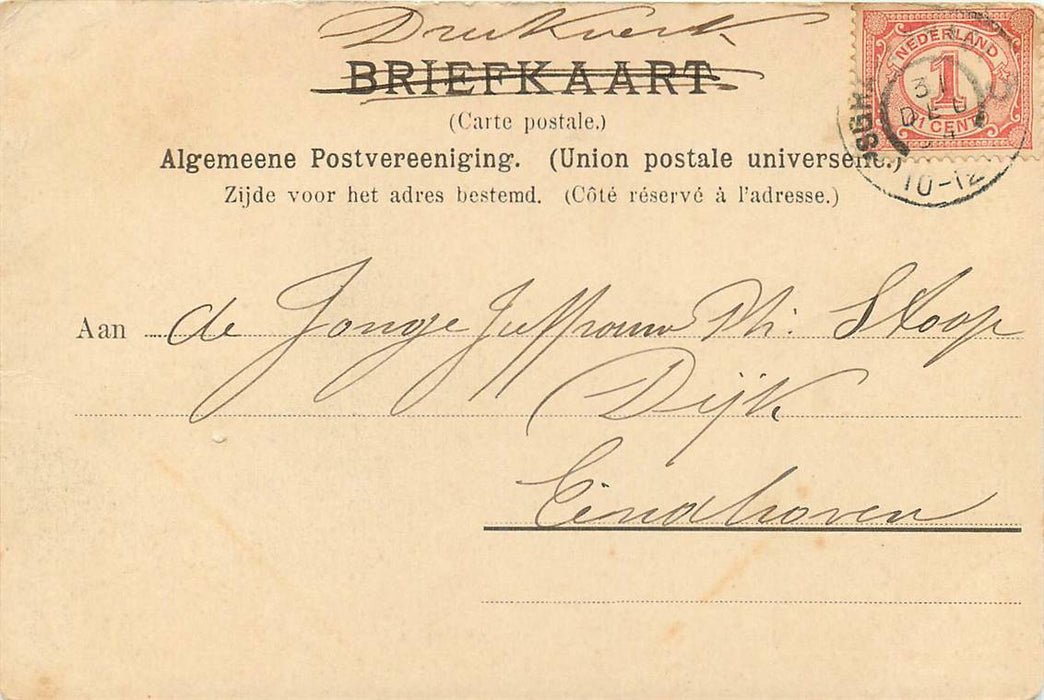 Drukwerk
BRIEFKAART
(Carte postale.)
Algemeene Postvereeniging. (Union postale universelle.)
Zijde voor het adres bestemd. (Côté réservé à l'adresse.)
NEDERLAND
1
1 CENT
31
DEC
10-12
Aan de Jonge Juffrouw Ph. Stoop
Dijk
Eindhoven